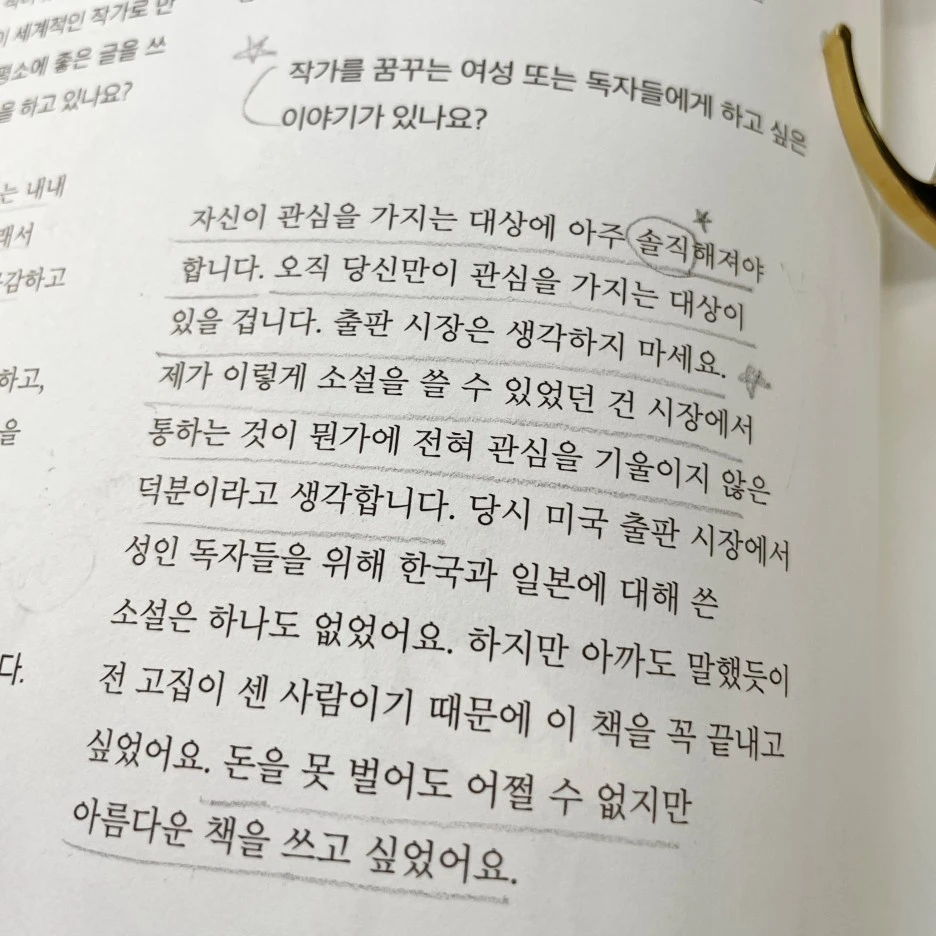 이 세계적인 작가로
평소에 좋은 글을 쓰
을 하고 있나요?
는 내내
래서
하고,
을
다.
작가를 꿈꾸는 여성 또는 독자들에게 하고 싶은
이야기가 있나요?
자신이 관심을 가지는 대상에 아주 솔직해져야
합니다. 오직 당신만이 관심을 가지는 대상이
있을 겁니다. 출판 시장은 생각하지 마세요.
제가 이렇게 소설을 쓸 수 있었던 건 시장에서
통하는 것이 뭔가에 전혀 관심을 기울이지 않은
덕분이라고 생각합니다. 당시 미국 출판 시장에서
성인 독자들을 위해 한국과 일본에 대해 쓴
소설은 하나도 없었어요. 하지만 아까도 말했듯이
전 고집이 센 사람이기 때문에 이 책을 꼭 끝내고
싶었어요. 돈을 못 벌어도 어쩔 수 없지만
아름다운 책을 쓰고 싶었어요.